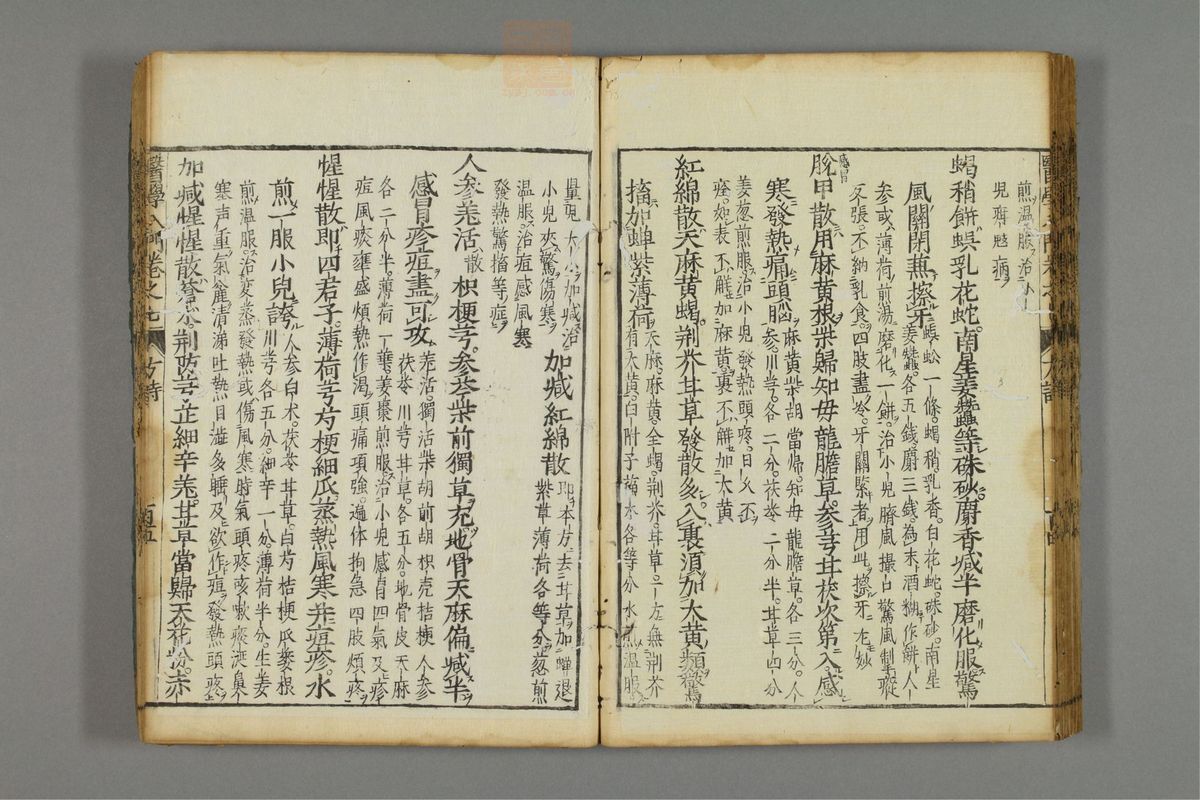 煎溫服治小
兒臍腿病
蝎稍餅蜈乳花蛇南星姜蠶等硃砂麝香減半磨化服驚
風關閉煎擦牙
蜈蚣一條蝎稍乳香白花蛇硃砂南星
姜蠶各五錢麝三錢為末酒糊作餅人
參或薄荷煎湯磨化一餅治小兒臍風撮口驚風制瘲
冬張不納乳食四肢盡冷牙關緊者用此擦牙尤妙
脫甲散用麻黃根柴歸知毋龍膽草參芎茯次第入感
感冒
寒發熱痛頭腦
麻黃柴胡當帰知毋龍膽草各三分人
參川芎各二分茯苓二分半甘草四分
姜葱煎服治小兒發熱頭疼日久不
痊如表不解加麻黃裹不解加大黃
紅綿散天麻黃蝎荆芥甘草發散多入裏須加大黃類驚
搐加蟬紫薄荷
天麻麻黃全蝎荆芥甘草一方無荆芥
有大黃白附子蘓木各等分水煎溫服
量兒大小加減治
小兒夾驚傷寒
溫服治痘感風寒
發熱驚搐等症
加減紅綿散
即本方去甘草加蟬退
紫草薄荷各等分葱煎
人參羗活散
枳梗芎參苓柴前獨草充地骨天麻偏減半
感冒疹痘盡可攻
羗活獨活柴胡前胡枳壳桔梗人參
茯苓川芎甘草各五分地骨皮天麻
各二分半薄荷一葉姜棗煎服治小兒感冒四氣及疹
痘風痰壅盛煩熱作渴頭痛項強遍体拘急四肢煩疼
惺惺散即四君子薄荷芎芍梗細瓜蒸熱風寒并痘疹水
煎一服小兒誇
人參白朮茯苓甘草白芍桔梗瓜蔞根
川芎各五分細辛一分薄荷半分生姜
煎溫服治変蒸發熱或傷風寒時氣頭疼咳嗽痰涎鼻
寒声重氣麄清涕吐熱目澁多睡及欲作痘發熱頭疼
加減惺惺散蒼朮荆防芎芷細辛羗甘草當歸天花粉赤
醫學入門卷之七
方詩